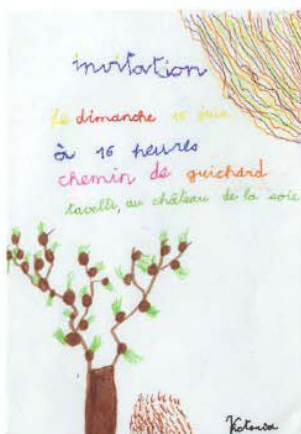 invitation
Le dimanche 16 juin
à 16 heures
chemin de guichard
tavelli, au château de la soie
Victoria